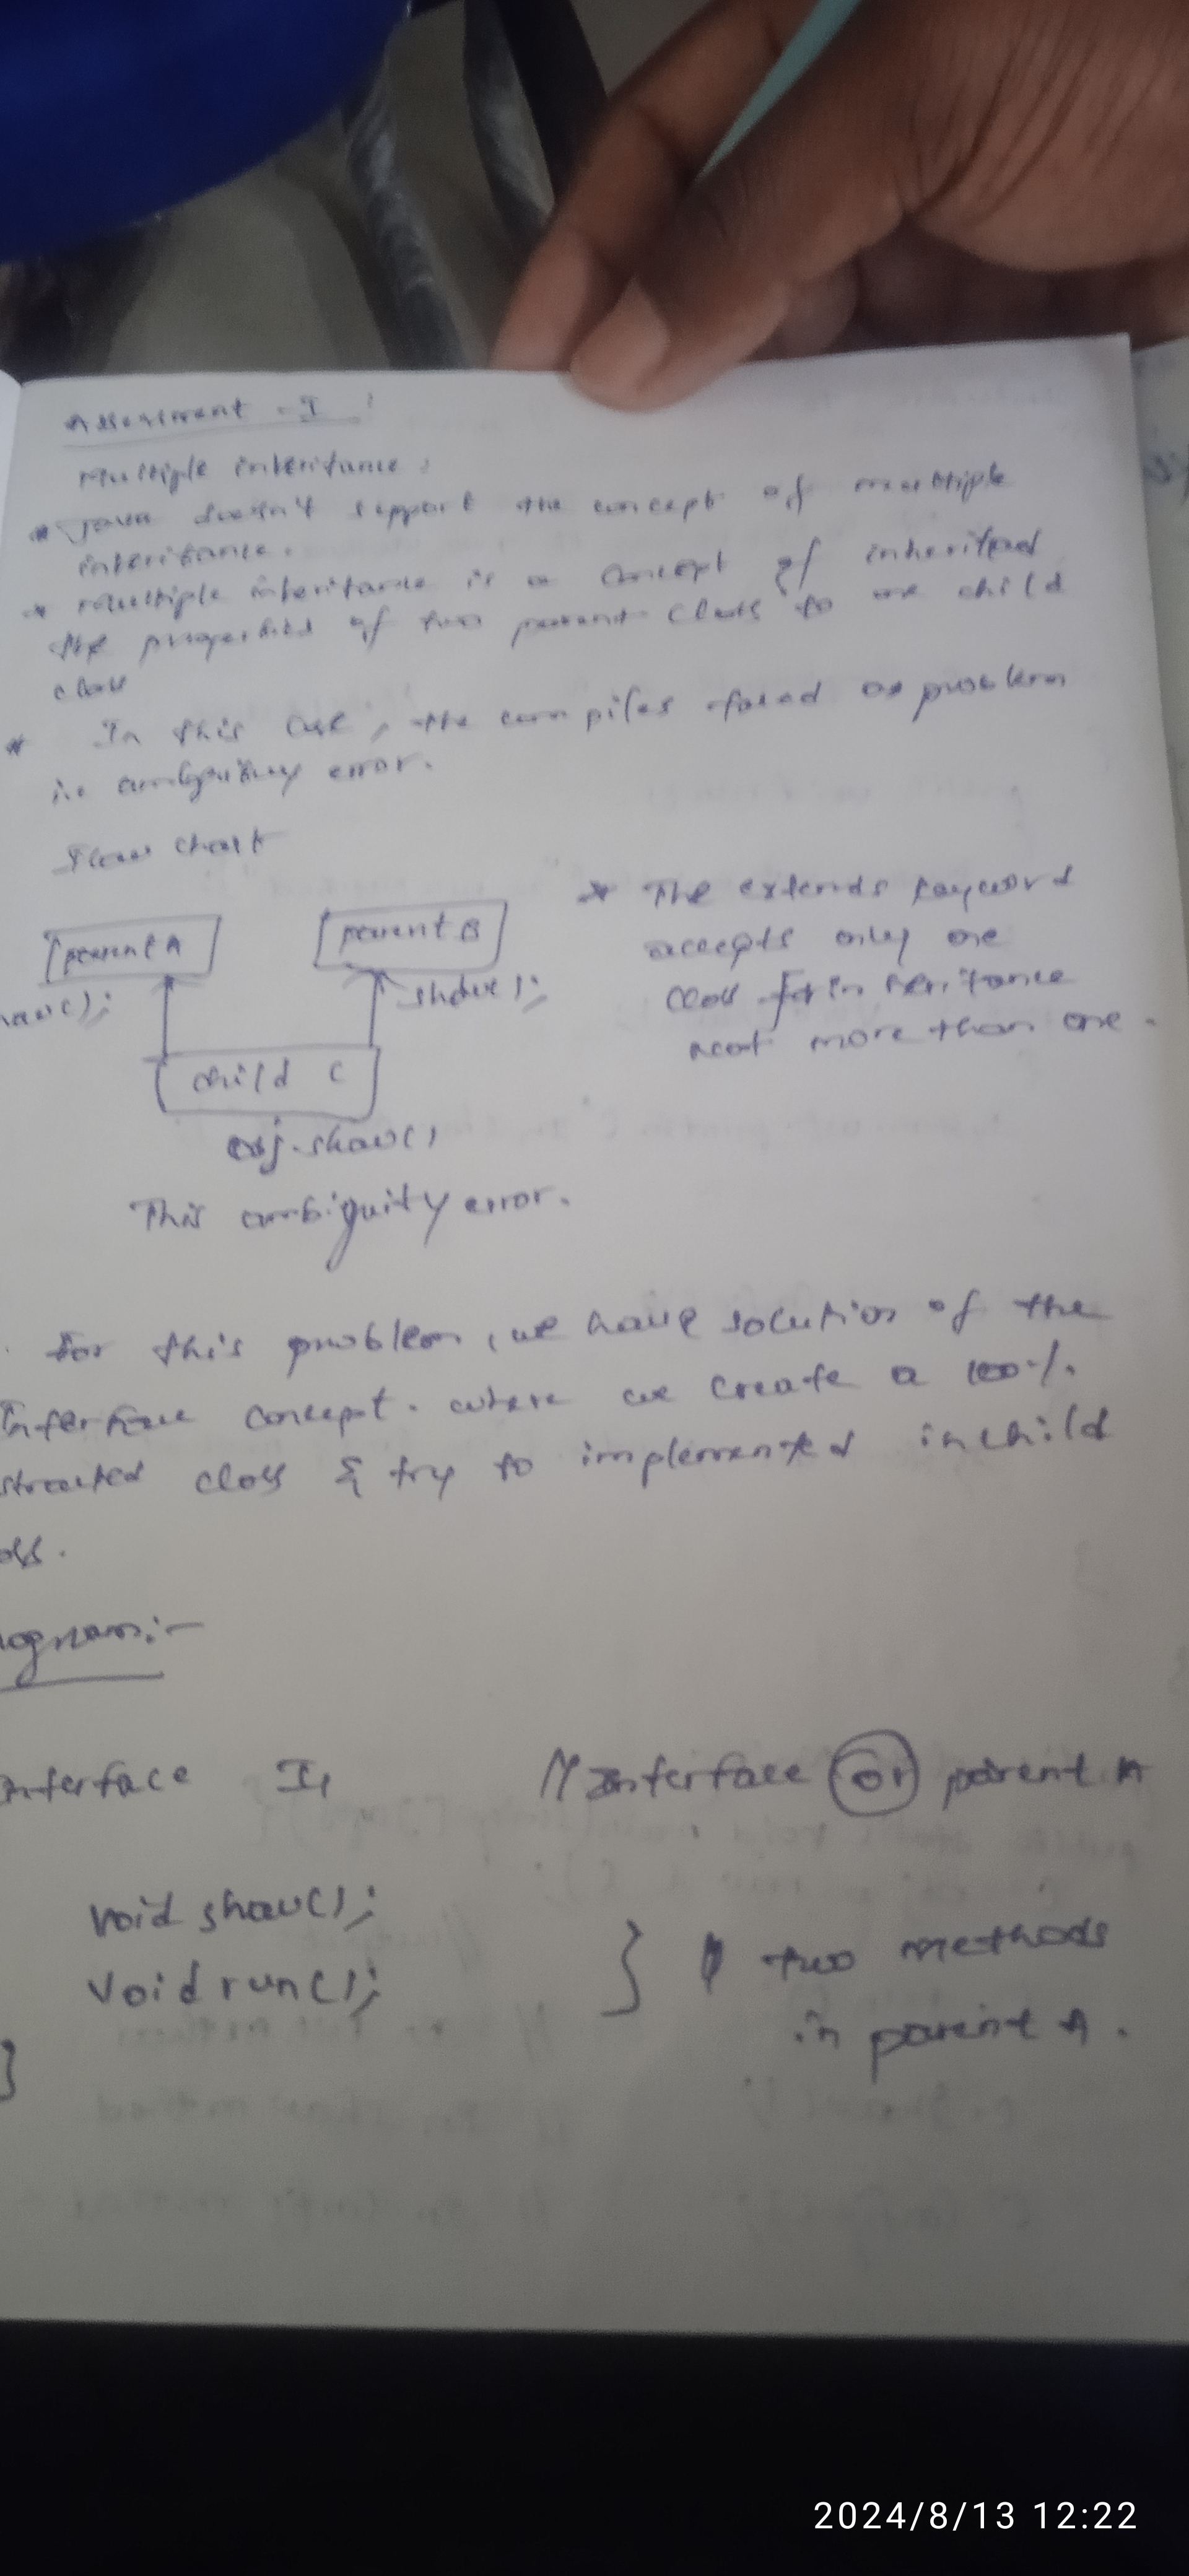 Assessment - I :
Multiple inheritance :
* Java doesn't support the concept of multiple
inheritance.
* Multiple inheritance is a concept of inherited
the properties of two parent class to one child
class
* In this case, the compiles faced as problem
i.e ambiguity error.
Flow chart
* The extends keyword
parent A
parent B
accepts only one
show();
class for inheritance
not more than one.
child C
obj.show()
This ambiguity error.
For this problem, we have solution of the
Interface concept. where we create a 100%.
stracted class & try to implemented in child
ass.
ogram:-
Interface I1 // Interface or parent A
void show();
void run(); } two methods
in parent A.
}
2024/8/13 12:22